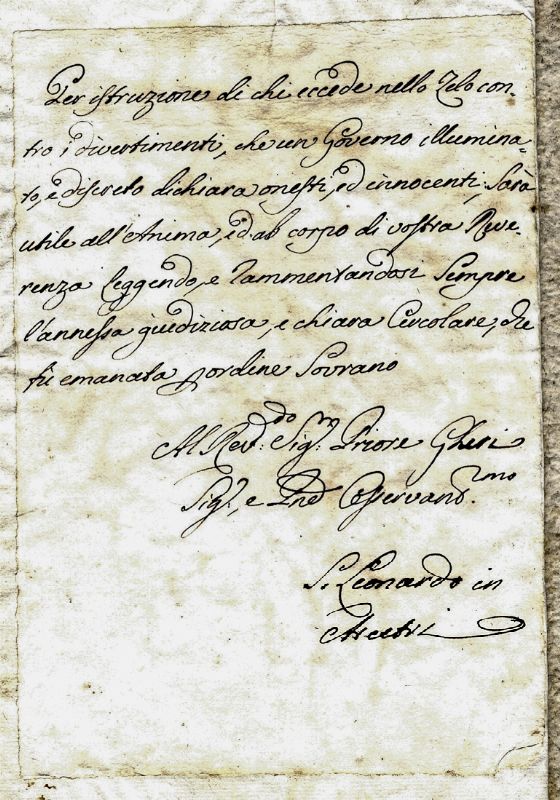 Per istruzione di chi eccede nello Zelo con-
tro i divertimenti, che un Governo illumina-
to, e discreto dichiara onesti, ed innocenti, Sarà
utile all'Anima, ed al corpo di vostra Reve-
renza leggendo, e rammentandosi Sempre
l'annessa giudiziosa, e chiara Circolare, che
fù emanata ordine Sovrano
Al Rev.do Sig.r Priore Gheri
Sig.r, e Pnē Osservand.mo
S. Leonardo in
Arcetri